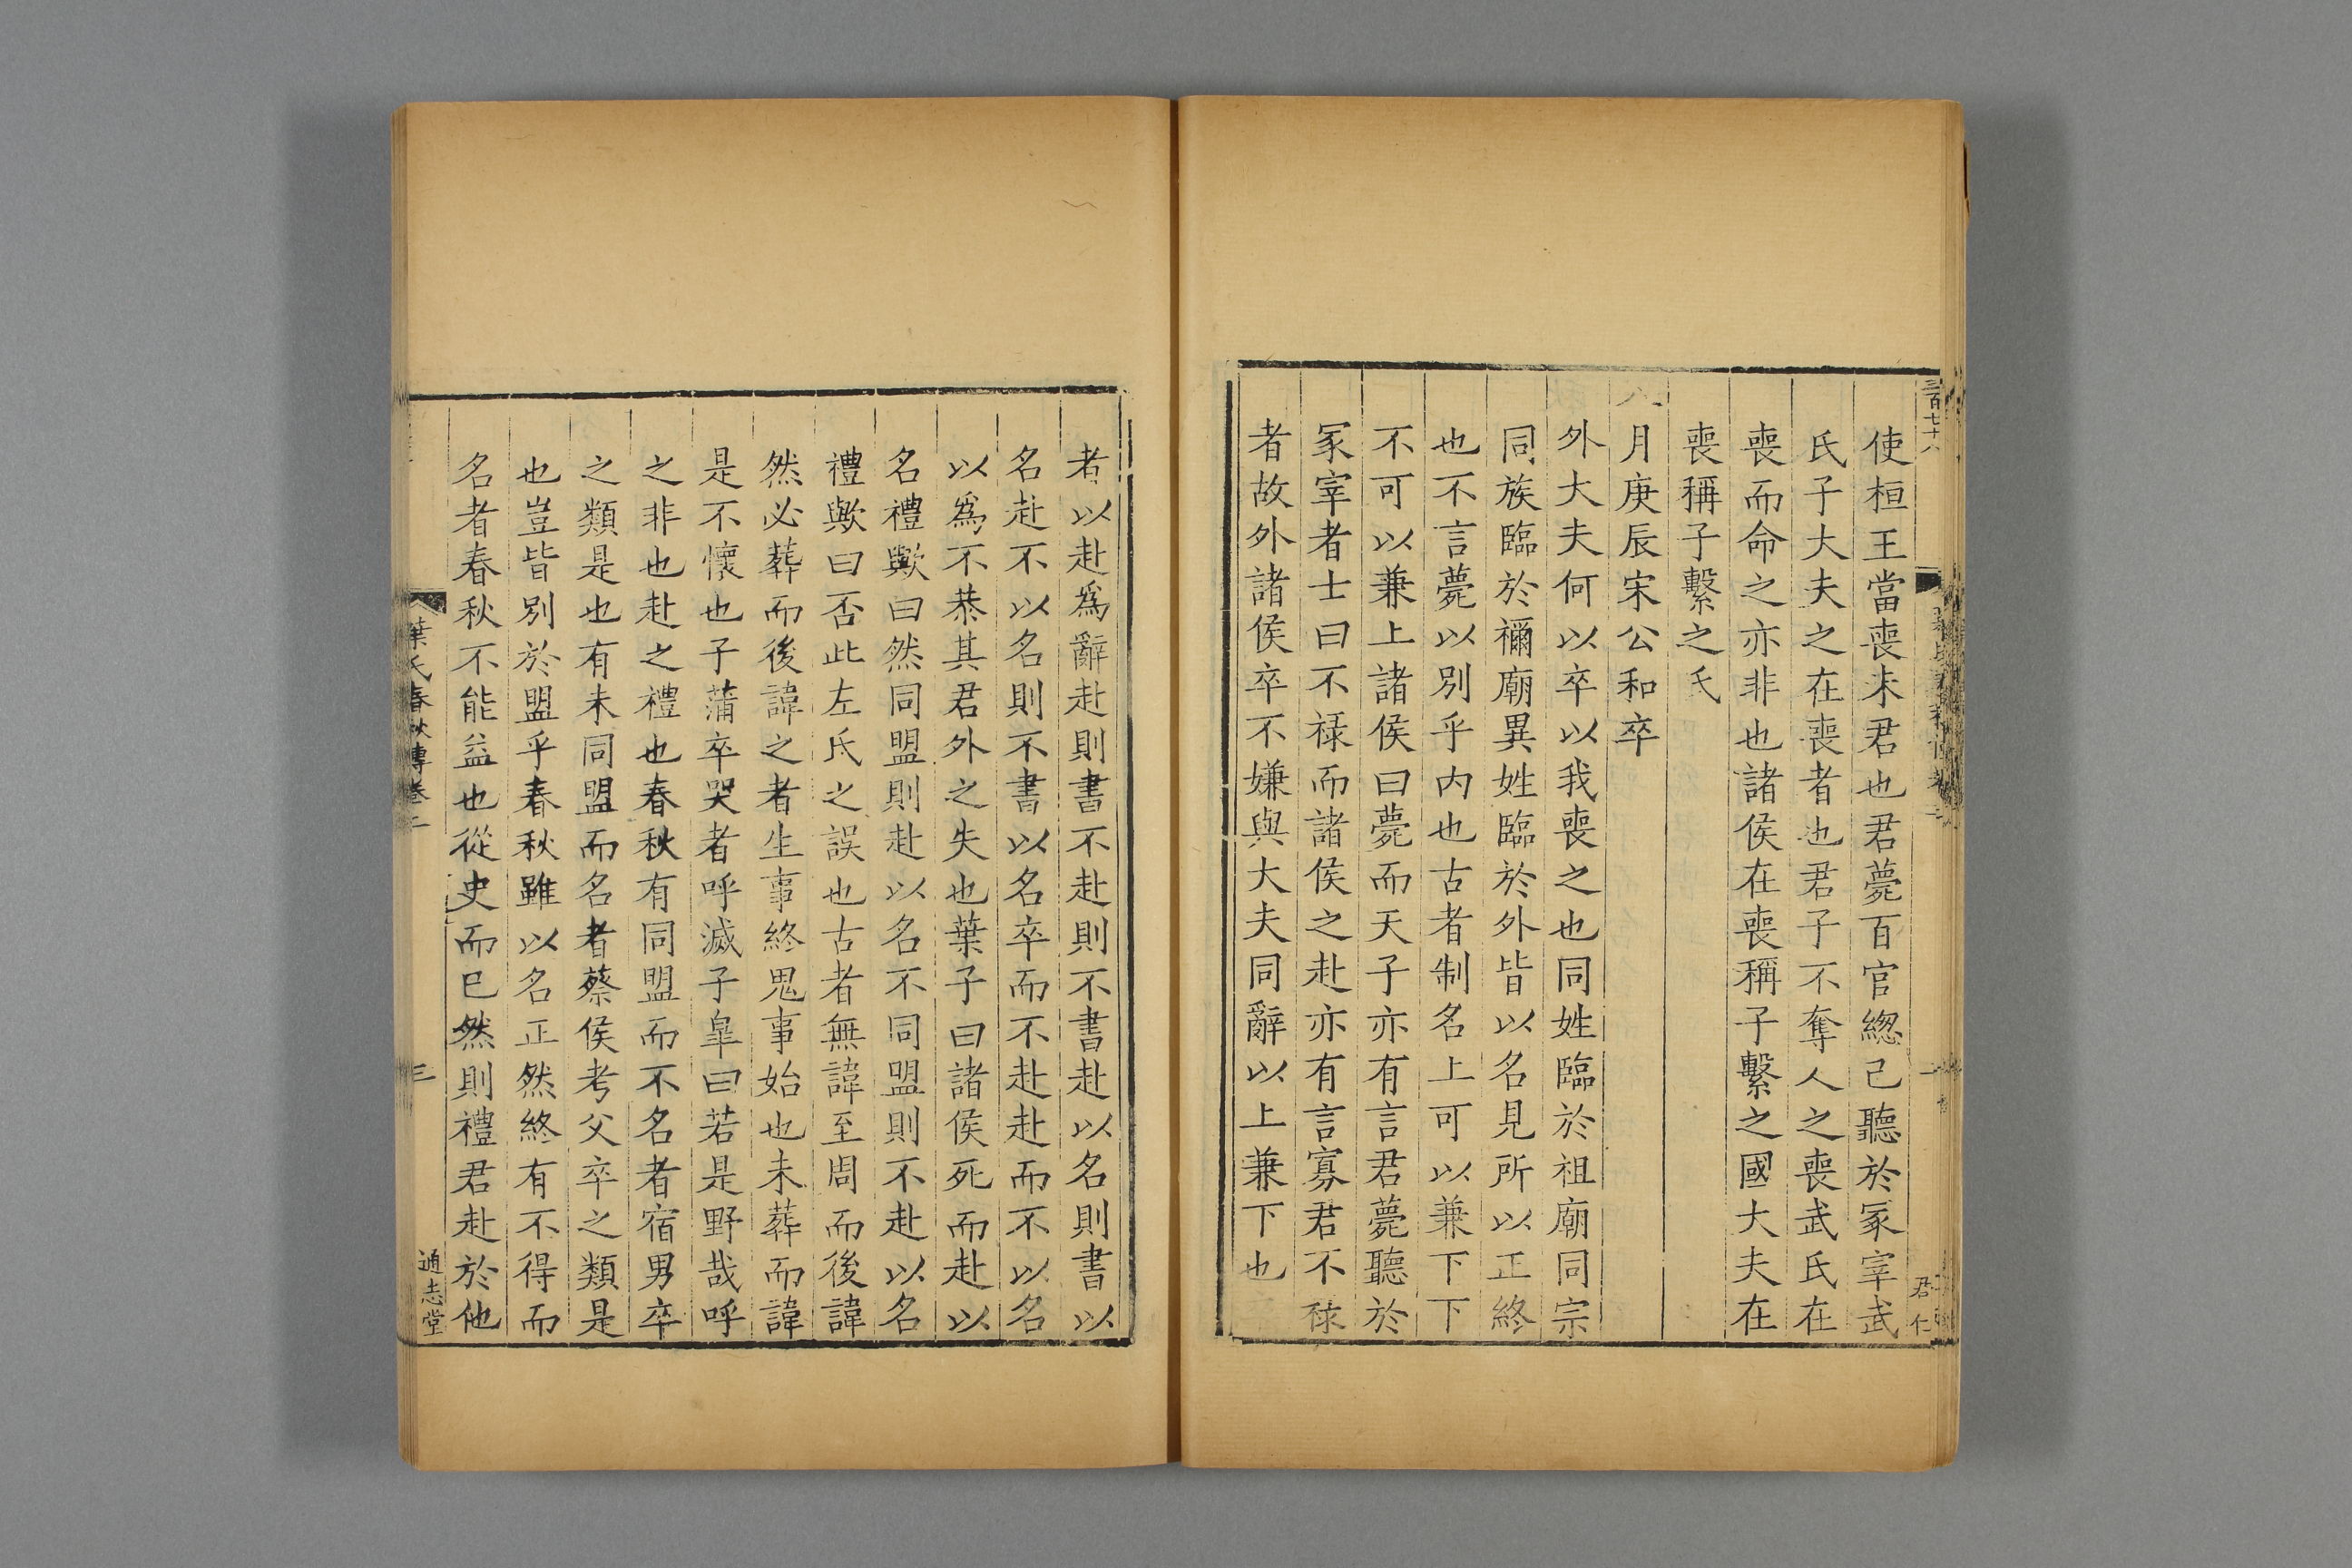 三百七十八
君仁
使桓王當喪未君也君薨百官緫己聽於冢宰武
氏子大夫之在喪者也君子不奪人之喪武氏在
喪而命之亦非也諸侯在喪稱子繫之國大夫在
喪稱子繫之氏
八月庚辰宋公和卒
外大夫何以卒以我喪之也同姓臨於祖廟同宗
同族臨於禰廟異姓臨於外皆以名見所以正終
也不言薨以別乎内也古者制名上可以兼下下
不可以兼上諸侯曰薨而天子亦有言君薨聽於
冢宰者士曰不禄而諸侯之赴亦有言寡君不祿
者故外諸侯卒不嫌與大夫同辭以上兼下也
者以赴爲辭赴則書不赴則不書赴以名則書以
名赴不以名則不書以名卒而不赴赴而不以名
以爲不恭其君外之失也葉子曰諸侯死而赴以
名禮歟曰然同盟則赴以名不同盟則不赴以名
禮歟曰否此左氏之誤也古者無諱至周而後諱
然必葬而後諱之者生事終鬼事始也未葬而諱
是不懷也子蒲卒哭者呼滅子皐曰若是野哉呼
之非也赴之禮也春秋有同盟而不名者宿男卒
之類是也有未同盟而名者蔡侯考父卒之類是
也豈皆別於盟乎春秋雖以名正然終有不得而
名者春秋不能益也從史而已然則禮君赴於他
葉氏春秋傳卷二
三
通志堂